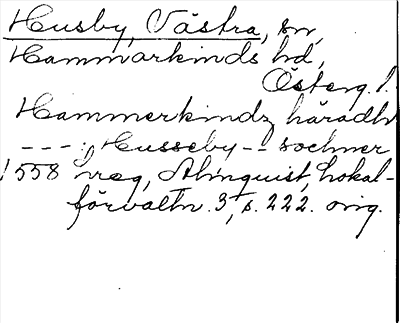 Husby, Västra, sn,
Hammarkinds hd,
Österg. l.
Hammerkindz häradh
- - - : Husseby - - sochner
1558 reg, Almquist, Lokal-
förvaltn. 3, s. 222. orig.